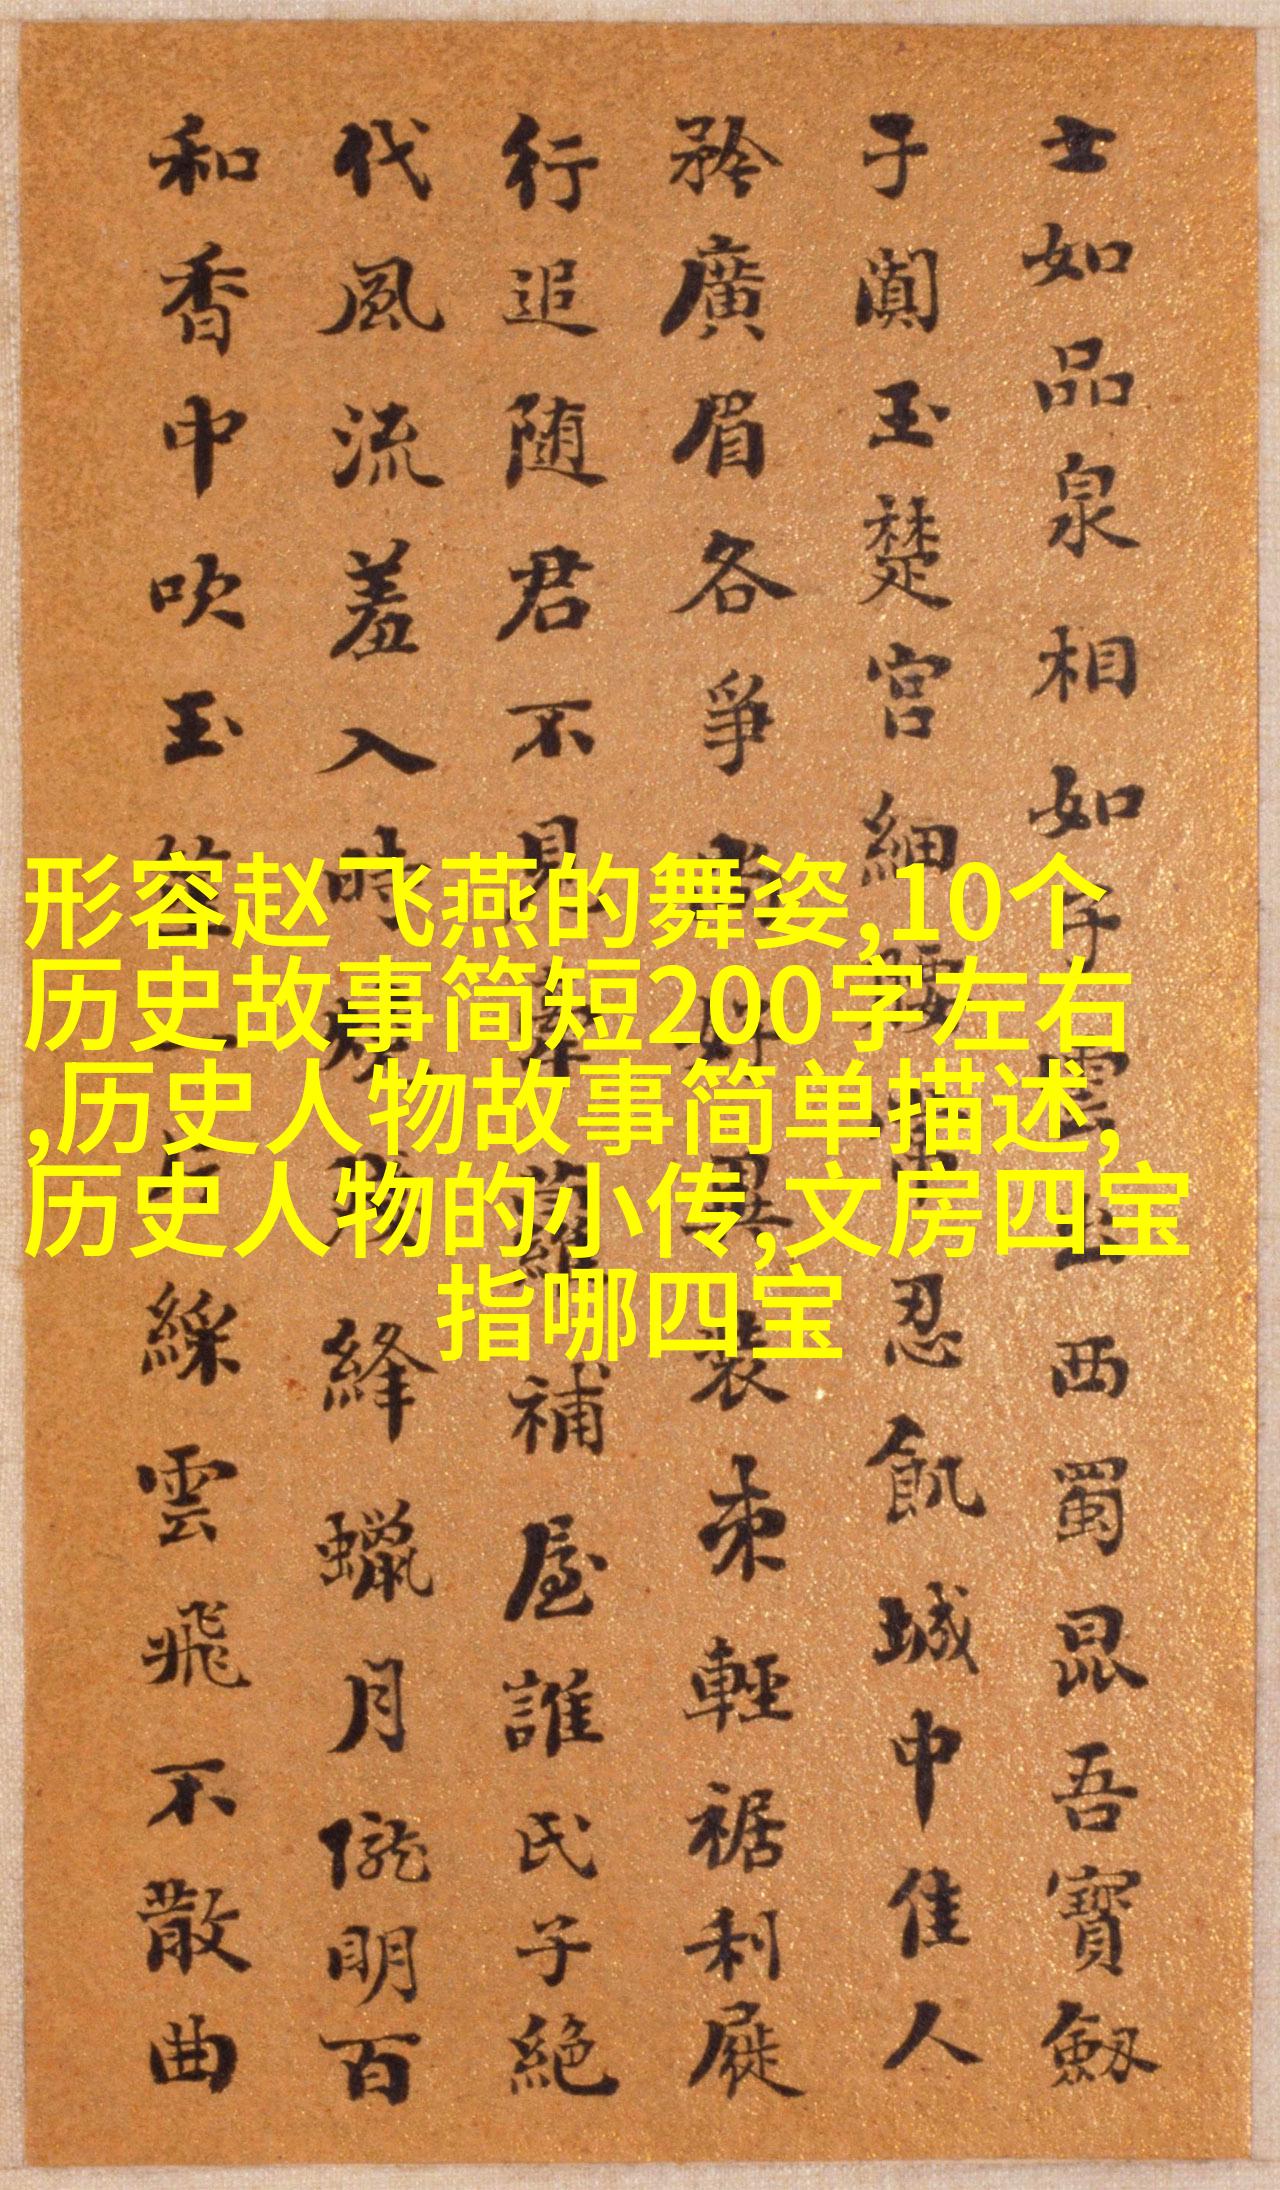 士如品泉相如子西蜀昆吾寶劔
于闐玉楚宮細腰忍飢城中佳人
矜廣眉各爭好異裝束輕裾利屣
行追随君不見牽蘿補屋誰氏子絕
代風流羞入時絳蠟月隴明百
和香中吹玉笙綵雲飛不散曲
形容赵飞燕的舞姿,10个
历史故事简短200字左右
,历史人物故事简单描述,
历史人物的小传,文房四宝
指哪四宝